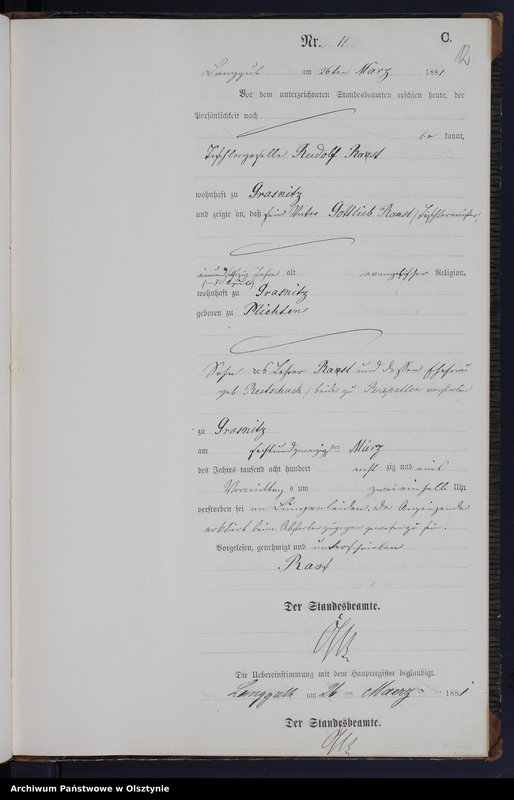 Nr. 11 C.
12
Langgut am 26ten März 1881
Vor dem unterzeichneten Standesbeamten erschien heute, der
Persönlichkeit nach
be kannt,
Tischlergeselle Rudolf Ranst
wohnhaft zu Grasnitz
und zeigte an, daß sein Vater Gottlieb Ranst, Tischlermeister,
Jahre alt evangelischer Religion,
wohnhaft zu Grasnitz
geboren zu Plichten
Sohn des Lehrer Ranst und dessen Ehefrau
geb. beide zu verstorben
zu Grasnitz
am sechsundzwanzigsten März
des Jahres tausend acht hundert acht zig und eins
Vormittags um zweieinhalb Uhr
verstorben sei an Lungenleiden. Der Anzeigende
erklärt beim Absterben zugegen gewesen zu sein.
Vorgelesen, genehmigt und unterschrieben
Rast
Der Standesbeamte.
Die Uebereinstimmung mit dem Hauptregister beglaubigt.
Langgutt am 26 ten Maerz 1881
Der Standesbeamte.
Archiwum Państwowe w Olsztynie